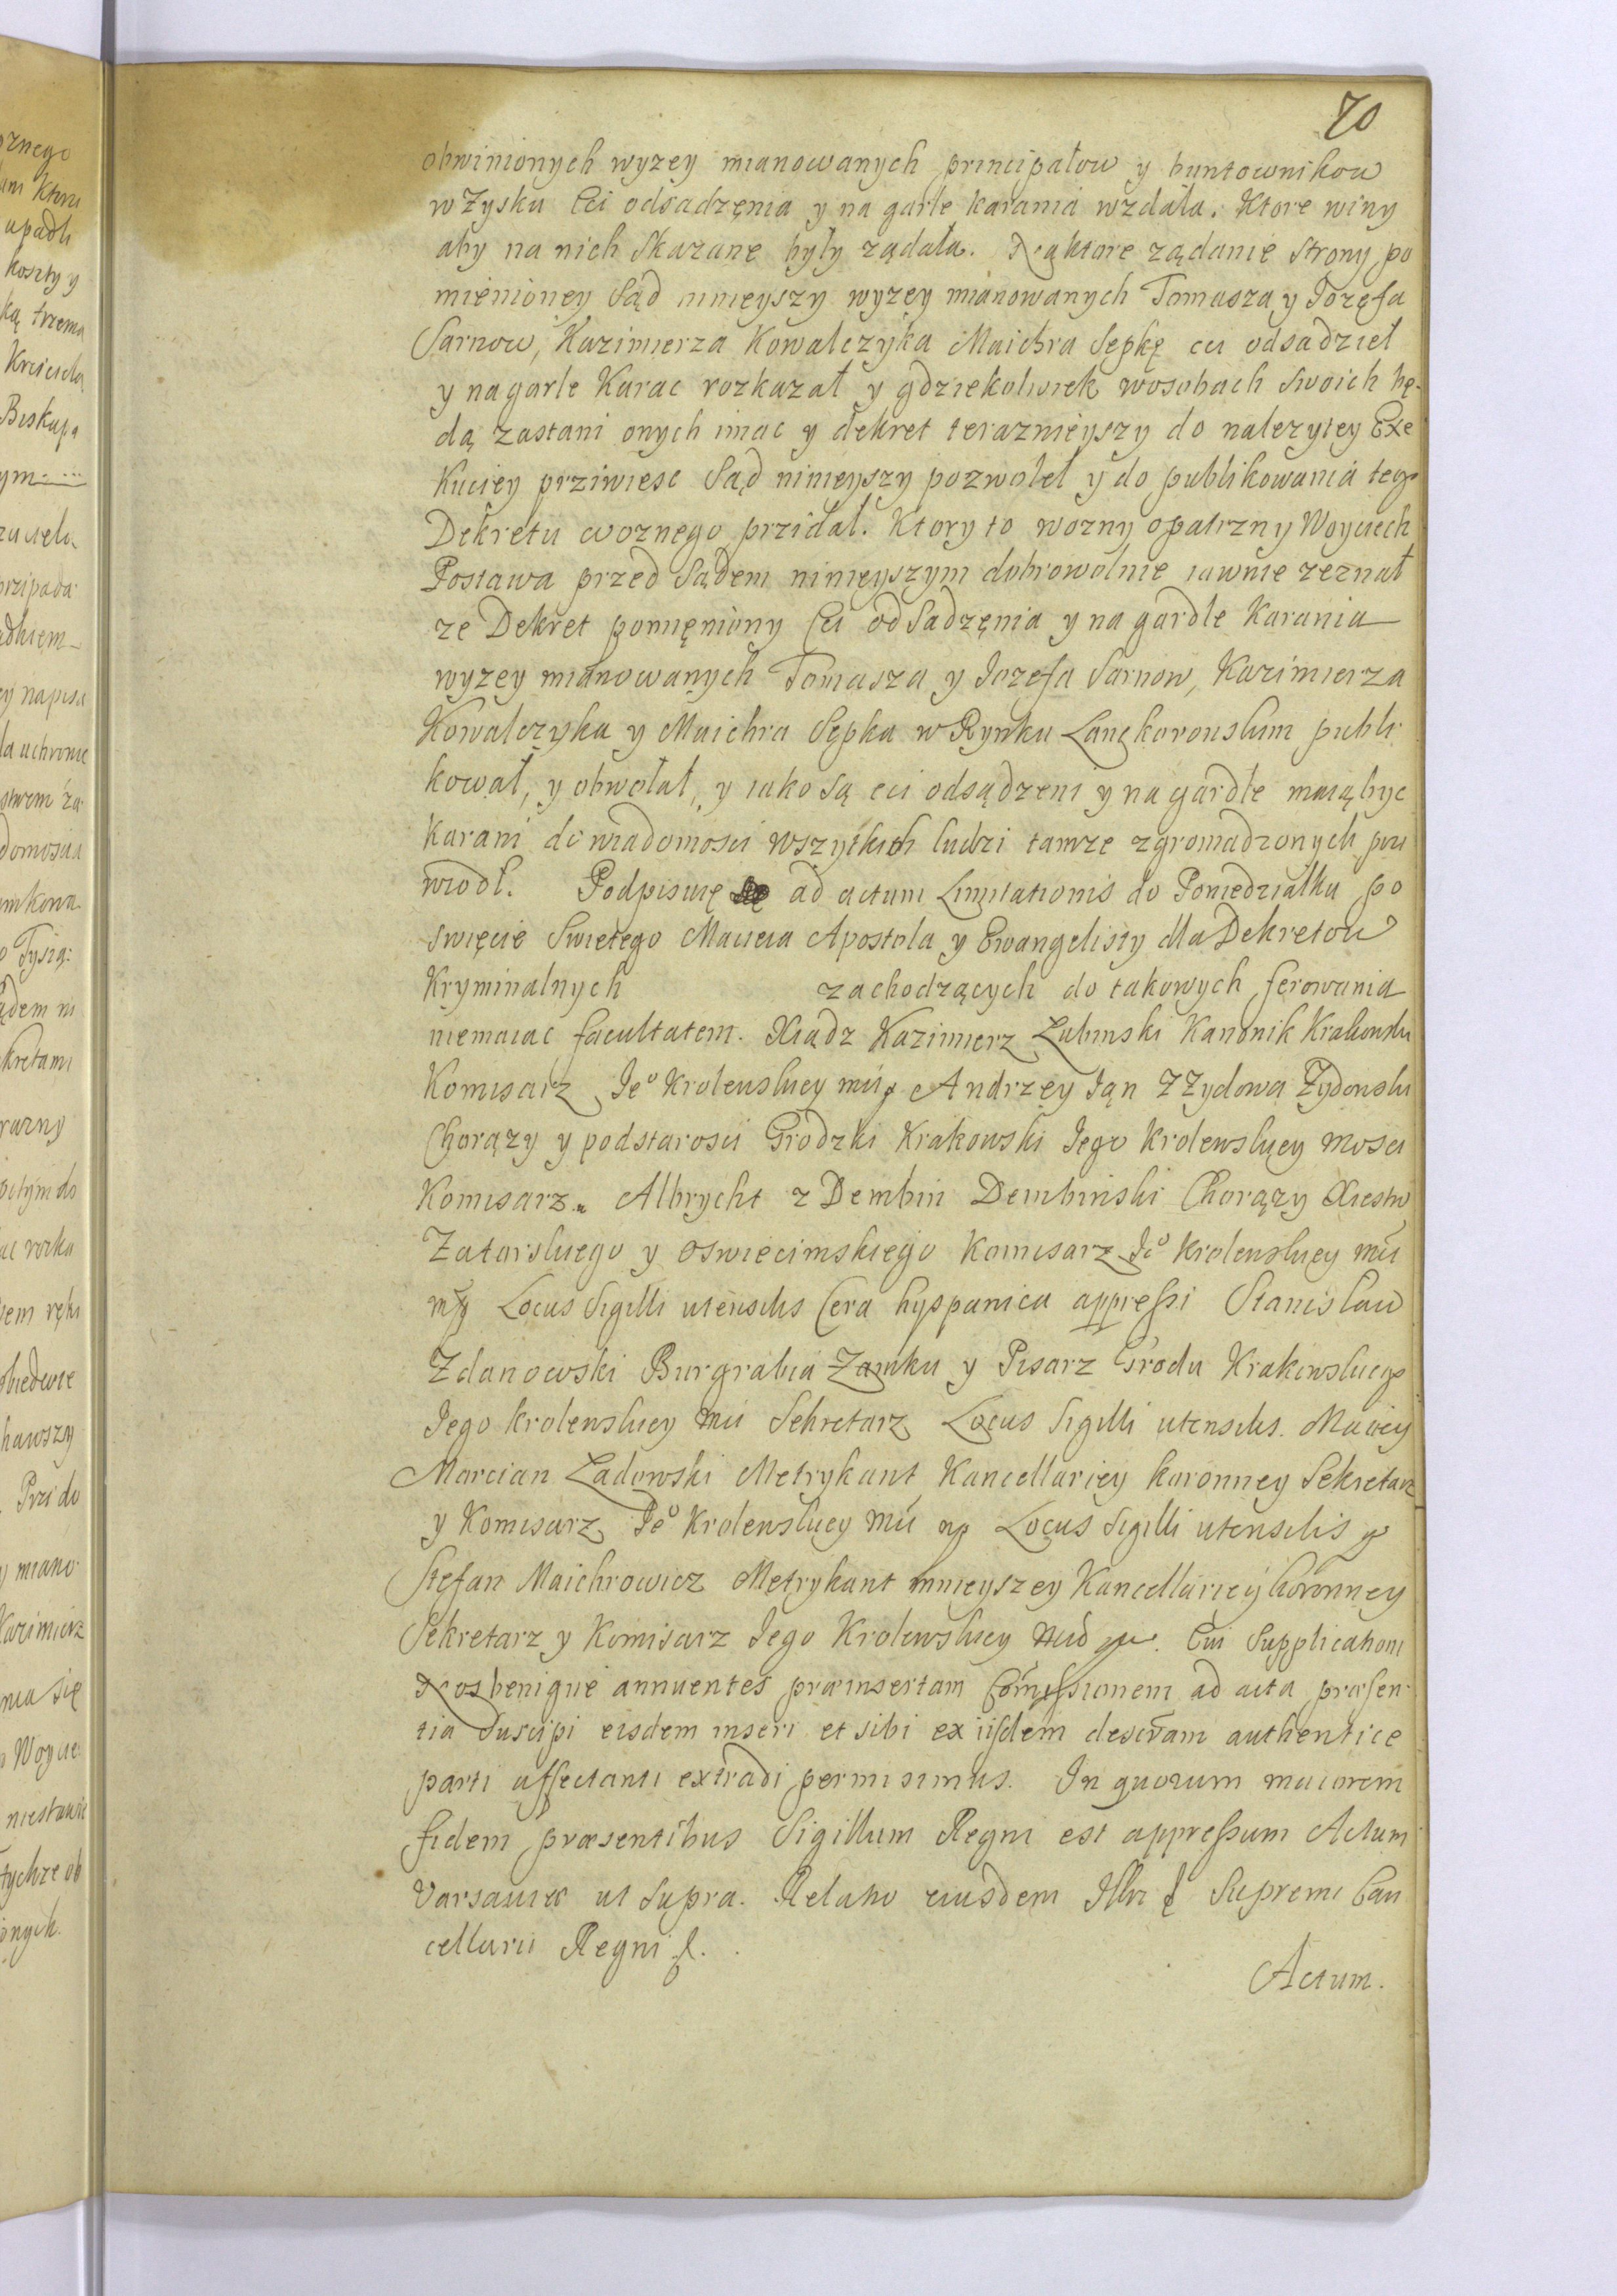 70
obwinionych wyzey mianowanych principałow y buntownikow
w Zysku Cci odsadzęnia y na garle karania wzdała. Ktore winy
aby na nich Skazane były ządała. Na ktore ządanie Strony po
mienioney Sąd ninieyszy wyzey mianowanych Tomasza y Jozefa
Sarnow, Kazimierza Kowalczyka Maichra Sepkę cci odsadzieł
y nagarle Karac rozkazał y gdziekolwiek wosobach Swoich bę-
dą zastani onych imac y dekret teraznieyszy do nalezytey Exe
Kuciey prziwiesc Sąd ninieyszy pozwoleł y do publikowania tego
Dekretu woznego przidał. Ktory to wozny opatrzny Woyciech
Postawa przed Sądem ninieyszym dobrowolnie iawnie zeznał
ze Dekret pomieniony Cci odSadzęnia y na gardle Karania
wyzey mianowanych Tomasza y Jozefa Sarnow, Kazimierza
Kowalczyka y Maichra Sępka w Rynku Lanckoronskim publi
kował, y obwołał, y iako są cci odsądzeni y na gardle maią byc
Karani do wiadomosci wszytkich ludzi tamze zgromadzonych przi
wiodł. Podpisuię ad actum Limitationis do Poniedziałku po
Swięcie Swietego Macieia Apostola y Ewangelisty dla Dekretow
Kryminalnych zachodzących do takowych ferowania
niemaiac facultatem. Xiądz Kazimierz Łubinski Kanonik Krakowski
Komisarz Je° Krolewskiey mći Andrzey Ian Z Zydowa Zydowski
Chorązy y podstarosci Grodzki Krakowski Jego Krolewskiey mosci
Komisarz. Albrycht z Dembin Dembinski Chorązy Xiestw
Zatorskiego y Oswiecimskiego Komisarz Je° Krolewskiey mći
mp Locus Sigilli utensilis Cera hyspanica appressi Stanisław
Zdanowski Burgrabia Zamku y Pisarz Grodu Krakowskiego
Jego krolewskiey mći Sekretarz Locus Sigilli utensilis. Maciey
Marcian Ładowski Metrykant Kancellariey koronney Sekretarz
y Komisarz Je° Krolewskiey Mći mp Locus Sigilli utensilis
Stefan Maichrowicz Metrykant mnieyszey Kancellariey koronney
Sekretarz y Komisarz Jego Krolewskiey Mći mp. Cui Supplicationi
Nos benigne annuentes præinsertam Commissionem ad acta præsen-
tia Suscipi eisdem inseri et sibi ex iisdem descriptam authentice
parti affectanti extradi permisimus. In quorum maiorem
fidem præsentibus Sigillum Regni est appressum Actum
Varsaviæ ut Supra. Relatio eiusdem Illri & Supremi Can
cellarii Regni &.
Actum.